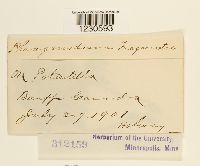 1230593
Phragmidium Fragariae
On Potentilla
Banff Canada
July 27 1901
Holway
312159
Herbarium of the University
Minneapolis, Minn